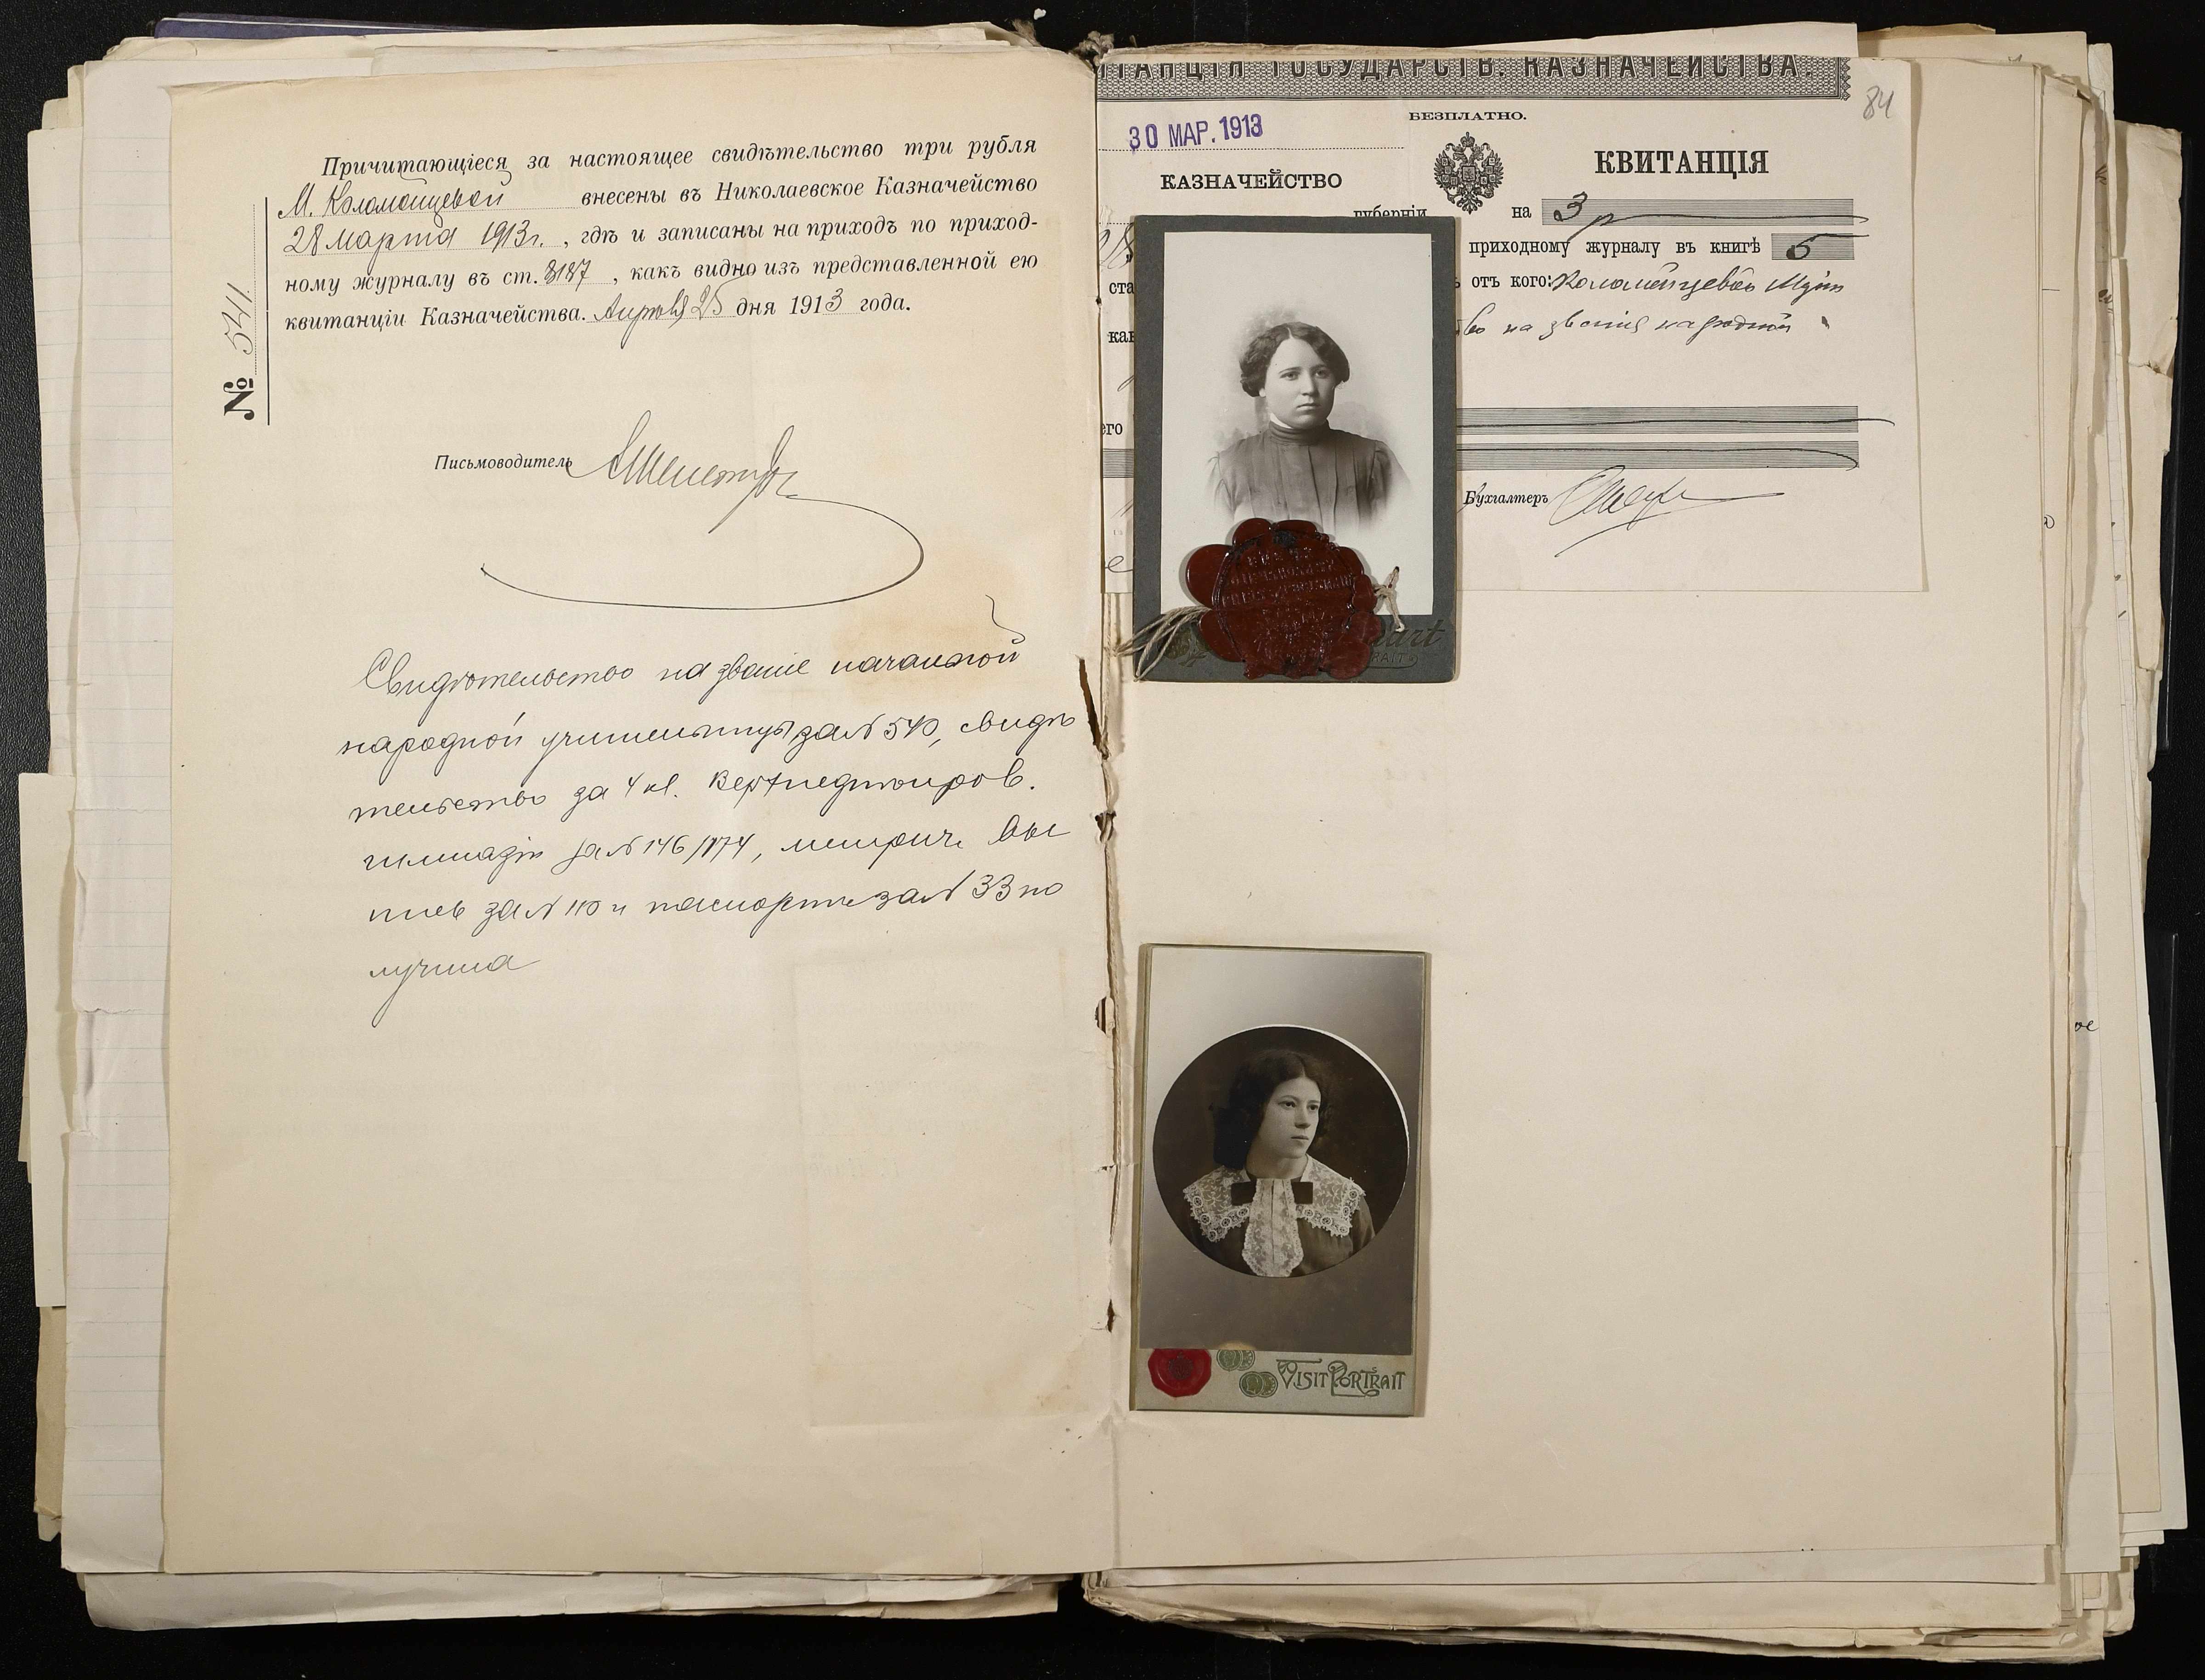 Причитающіеся за настоящее свидѣтельство три рубля
М. Коломойцевой внесены въ Николаевское Казначейство
28 Марта 1913 г., гдѣ и записаны на приходъ по приход-
ному журналу въ ст. 8187, какъ видно изъ представленной ею
квитанціи Казначейства. Апрѣля 25 дня 1913 года.
№ 541
Письмоводитель
Свидѣтельство на званіе начальной
народной учительницы за № 540, свидѣ
тельство за 4 кл. Верхнеднѣпров.
гимназіи за № 146/1874, метрич. вы
пись за № 110 и паспортъ за № 33 по
лучила
ИТАНЦІЯ ГОСУДАРСТВ. КАЗНАЧЕЙСТВА.
84
30 МАР. 1913
БЕЗПЛАТНО.
КАЗНАЧЕЙСТВО
КВИТАНЦІЯ
губерніи
на 3 р
приходному журналу въ книгѣ 5
ста
ъ отъ кого: Коломойцевой
во на званіе народной
его
Бухгалтеръ
VISIT PORTRAIT